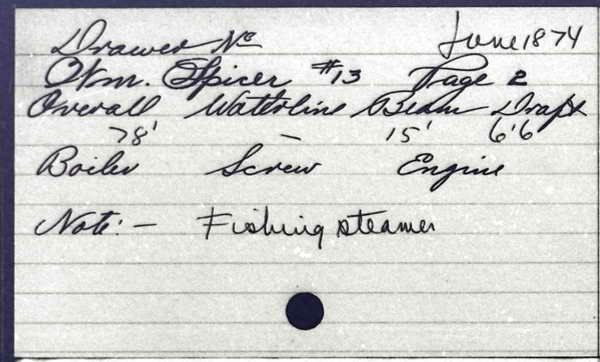 Drawer No June 1874
Wm. Spicer #13 Page 2
Overall Waterline Beam Draft
78' – 15' 6'6
Boiler Screw Engine
Note: – Fishing steamer